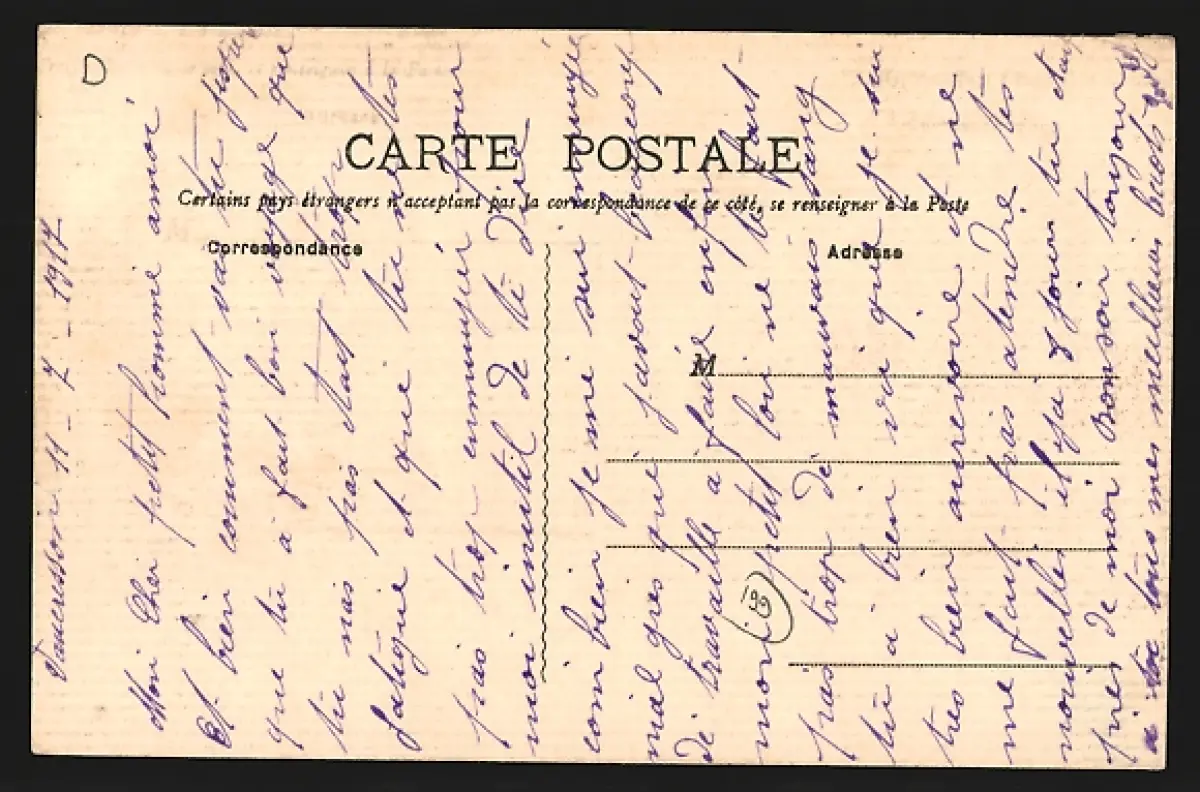 D
CARTE POSTALE
Certains pays étrangers n'acceptant pas la correspondance de ce côté, se renseigner à la Poste
Correspondance
Adresse
M
199
Vaucresson 11 - 7 - 1917
Mon Cher petit homme aimé
Et bien comment vas tu jespère
que tu à fait bon voyage que
tu nas pas était trop
fatigué et que tu ne tes
pas trop ennuyer pour
moi inutil de te dire
combien je me sui ennuyé
mal gres que javait beaucoup
de travaille a faire enfin
mon petit lou ne te fait
pas trop de mauvais sang
tu à bien vu que je sui
tres bien aurevoire et ne
me fait pas atendre tes
nouvelles il ya jours tu
pres de moi Bonsoir toujour
a toi tous mes meilleurs